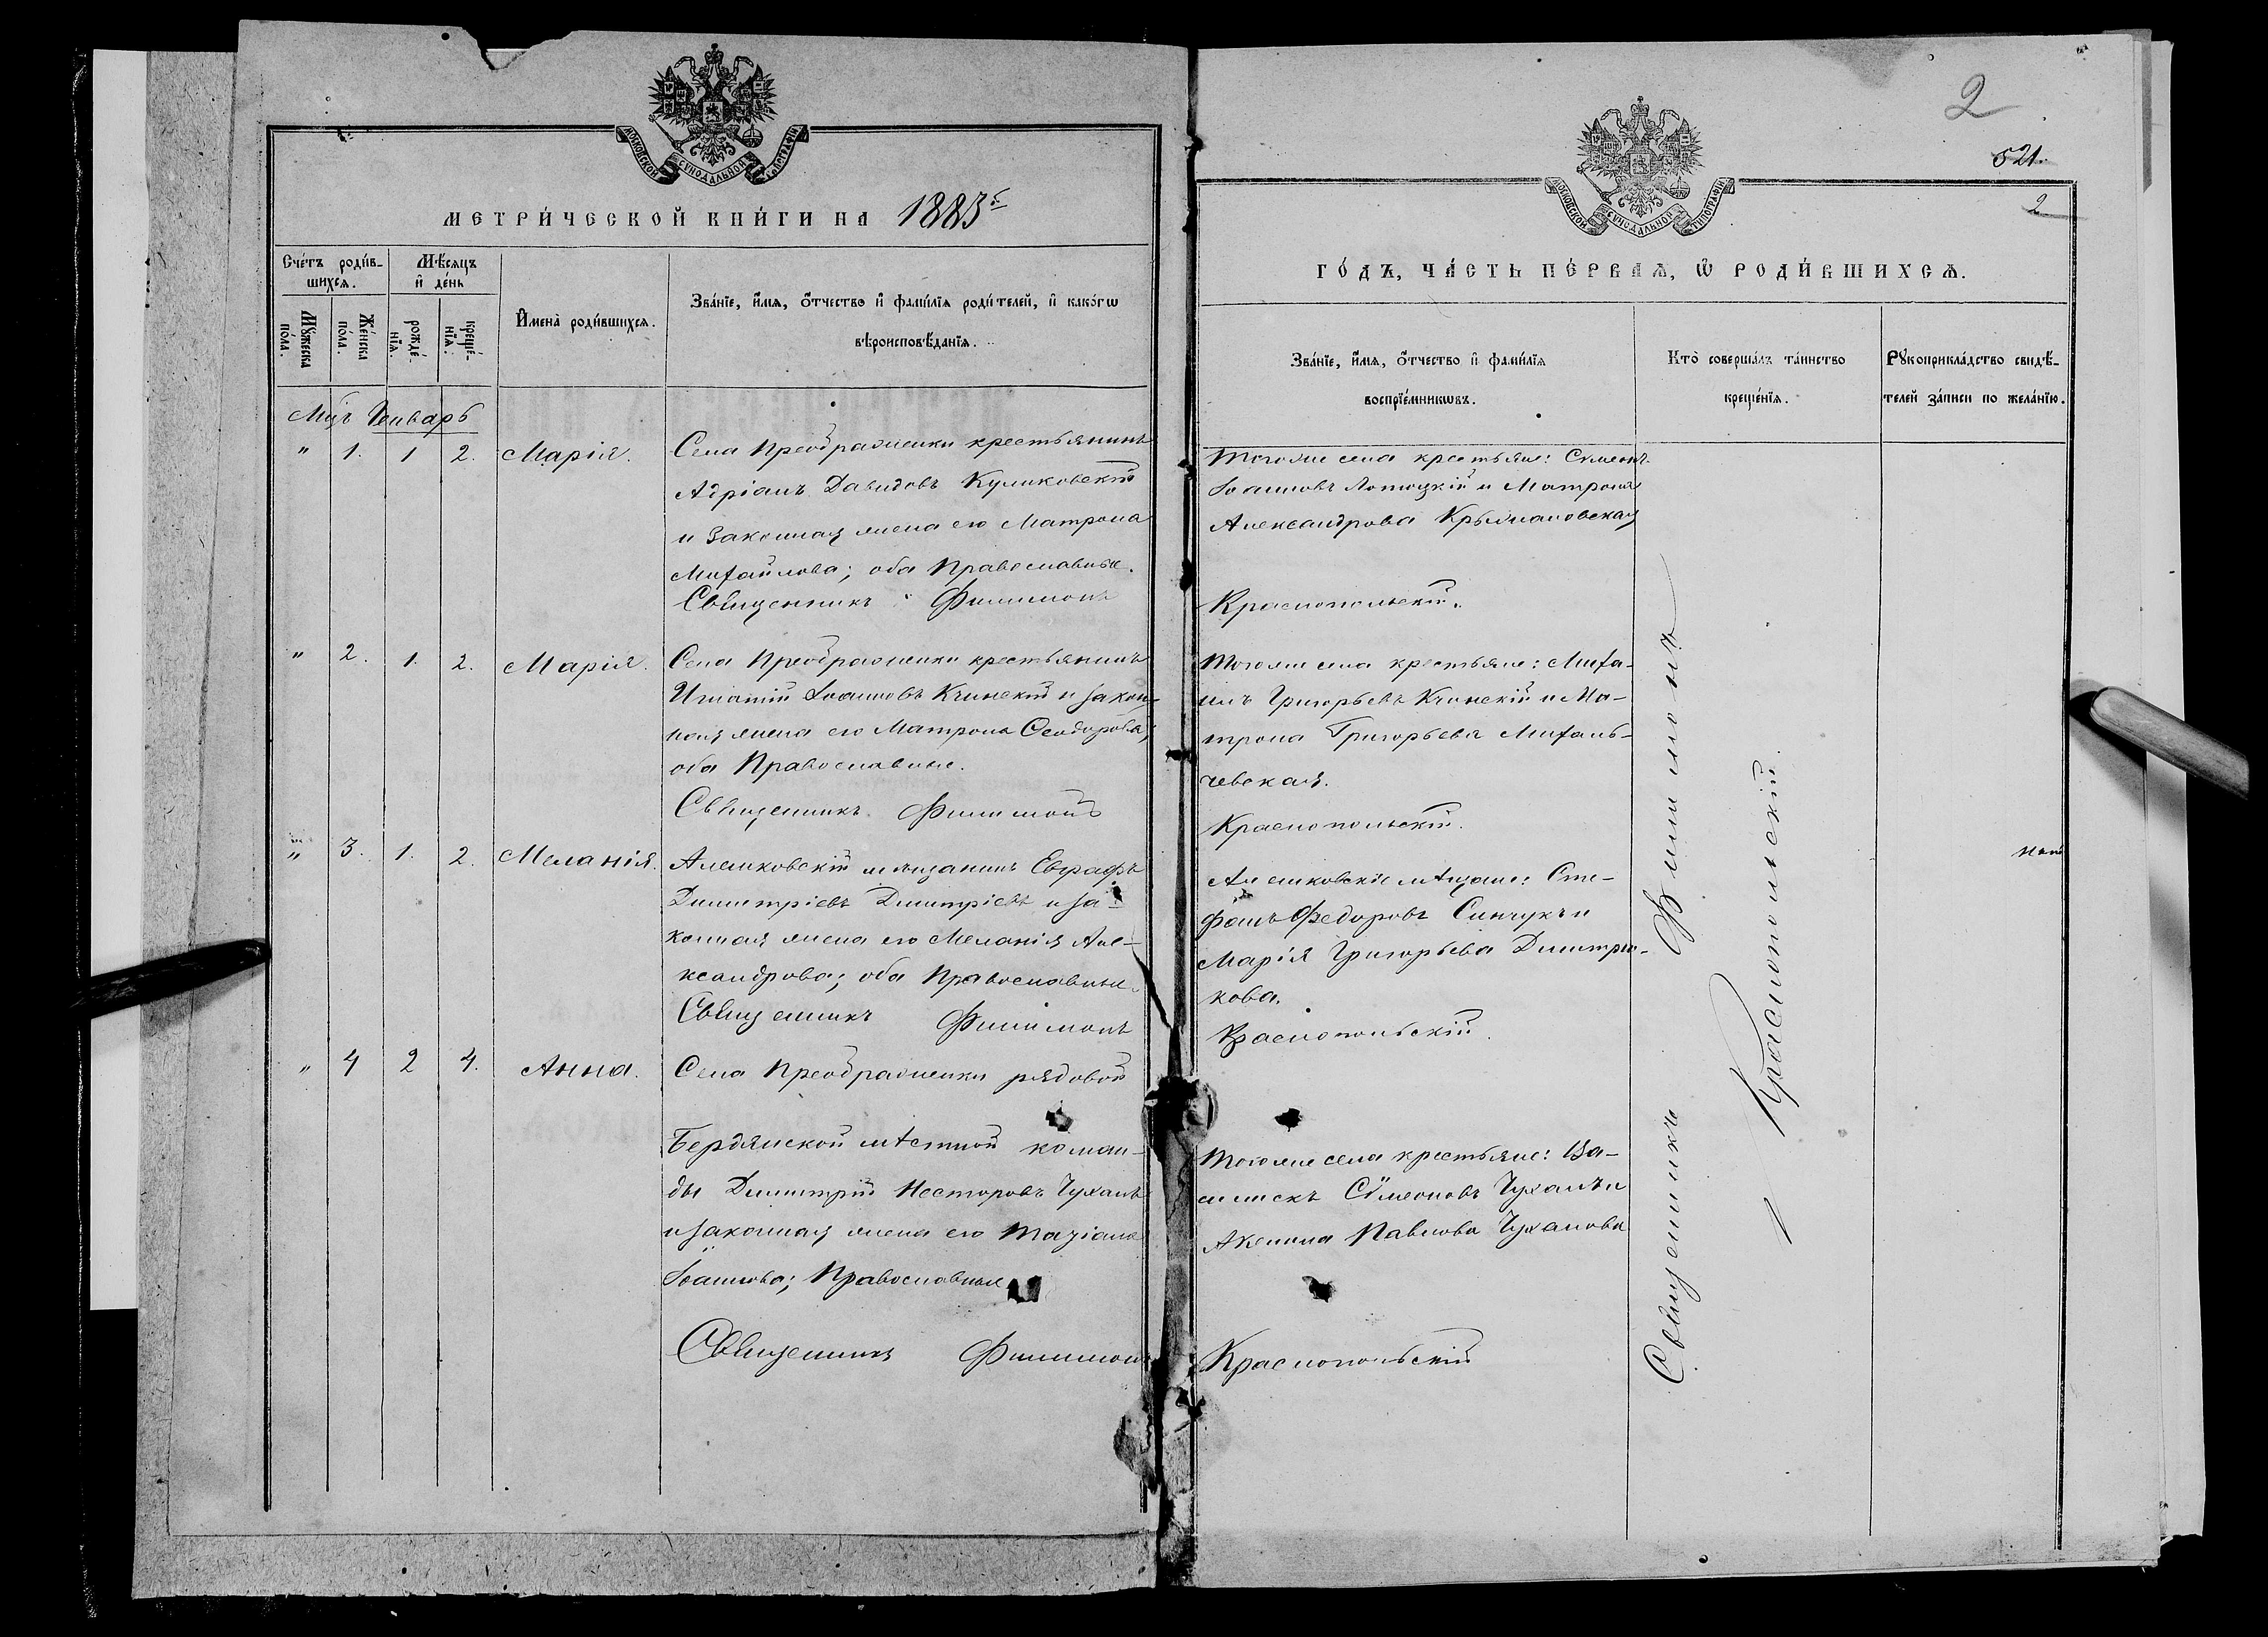 МОСКОВСКОЙ СУНОДАЛЬНОЙ ТИПОГРАФІИ
МЕТРИ́ЧЕСКОЙ КНИ́ГИ НА 1883й
Сче́тъ роди́в-
шихся.
Мѣ́сяцъ
и҆ де́нь
Мꙋ́жеска
по́ла.
Же́нска
по́ла.
рожде́-
нїѧ.
креще́-
нїѧ.
И҆мена̀ роди́вшихсѧ.
Зва́нїе, и҆́мѧ, ѻ҆́тчество и҆ фами́лїѧ роди́телей, и҆ како́гѡ
вѣроисповѣ́данїѧ.
Мцъ Генварь
" 1. 1 2. Марія. Села Преображенки крестьянинъ
Адріанъ Давидовъ Куликовскій
и законная жена его Матрона
Михайлова; оба Православные.
Священникъ Филимонъ
" 2. 1. 2. Марія. Села Преображенки крестьянинъ
Игнатій Іоанновъ Кчинскій и закон-
ная жена его Матрона Ѳеодорова;
оба Православные.
Священникъ Филимонъ
" 3. 1. 2. Меланія. Алешковскій мѣщанинъ Евграфъ
Димитріевъ Димитріевъ и за-
конная жена его Меланія Але-
ксандрова; оба Православные.
Священникъ Филимонъ
" 4 2 4. Анна. Села Преображенки рядовой
Бердянской мѣстной коман-
ды Димитрій Несторовъ Чуханъ
и законная жена его Татіана
Іоаннова; Православные
Священникъ Филимонъ
2
521.
2
МОСКОВСКОЙ СУНОДАЛЬНОЙ ТИПОГРАФІИ
ГО́ДЪ, ЧА́СТЬ ПЕ́РВАѦ, Ѡ҆ РОДИ́ВШИХСѦ.
Зва́нїе, и҆́мѧ, ѻ҆́тчество и҆ фами́лїѧ
воспрїе́мникѡвъ.
Кто̀ соверша́лъ та́инство
креще́нїѧ.
Рꙋкоприкла́дство свидѣ́-
телей за́писи по жела́нїю.
Тогоже села крестьяне: Сѵмеонъ
Іоанновъ Лотоцкій и Матрона
Александрова Крыжановская
Краснопольскій.
Тогоже села крестьяне: Миха-
илъ Григорьевъ Кчинскій и Ма-
трона Григорьева Михаль-
чевская.
Краснопольскій.
Алешковскіе мѣщане: Сте-
фанъ Федоровъ Синчукъ и
Марія Григорьева Димитрю-
кова.
Краснопольскій.
Тогоже села крестьяне: Ва-
силискъ Сѵмеоновъ Чуханъ и
Аксинна Павлова Чуханова
Краснопольскій
Священникъ Филимонъ
Краснопольскій.